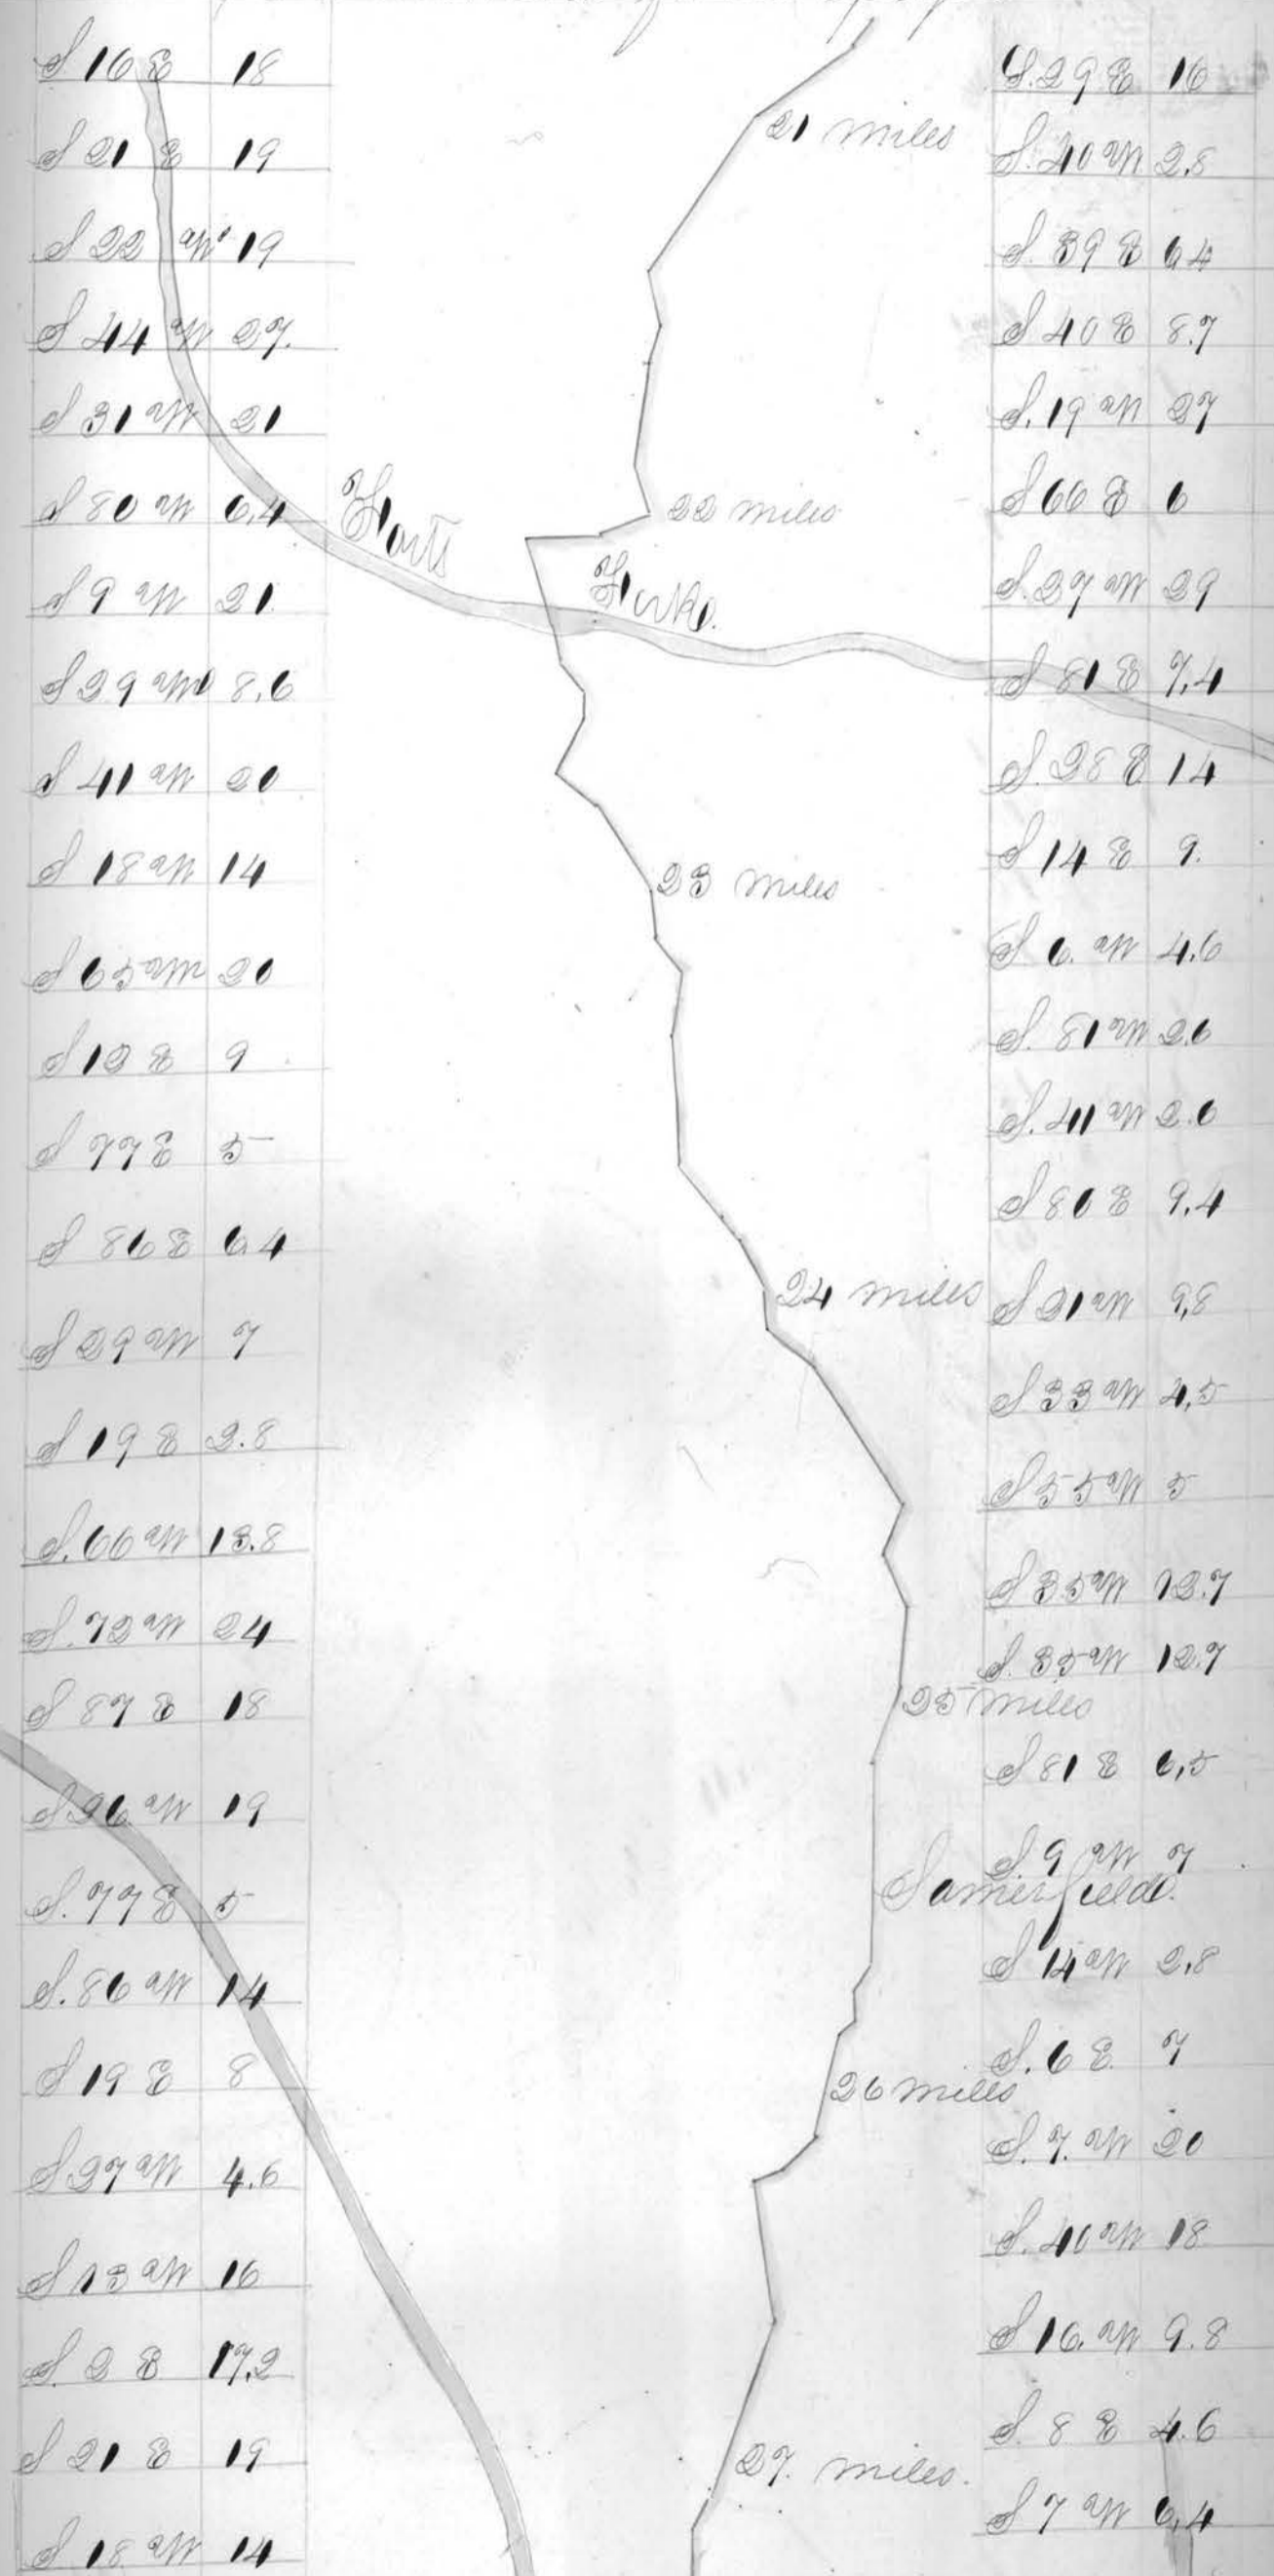 S 16 E 18
S 21 E 19
S 22 W 19
S 44 W 27.
S 31 W 21
S 80 W 6,4
S 9 W 21.
S 29 W 8,6
S 41 W 20
S 18 W 14
S 65 W 20
S 12 E 9
S 77 E 5
S 86 E 6.4
S 29 W 7
S 19 E 2.8
S. 66 W 13.8
S. 72 W 24
S 87 E 18
S. 26 W 19
S. 77 E 5
S. 86 W 14
S 19 E 8
S 27 W 4.6
S 13 W 16
S. 2 E 17,2
S 21 E 19
S 18 W 14
21 miles
22 miles
Forks.
23 miles
24 miles
25 miles
Samerfield.
26 miles
27. miles.
S. 29 E 16
S. 40 W 2,8
S. 39 E 6 4
S 40 E 8.7
S. 19 W 27
S 66 E 6
S. 27 W 29
S 81 E 7,4
S. 28 E 14
S 14 E 9.
S 6. W 4.6
S. 81 W 2.6
S. 41 W 2.6
S 80 E 9,4
S 21 W 9,8
S 33 W 4,5
S 55 W 5
S 35 W 12.7
S. 35 W 12.7
S 81 E 6,5
S. 9 W 7
S 14 W 2,8
S. 6 E. 7
S. 7. W 20
S. 40 W 18
S 16. W 9.8
S. 8 E 4.6
S 7 W 6,4